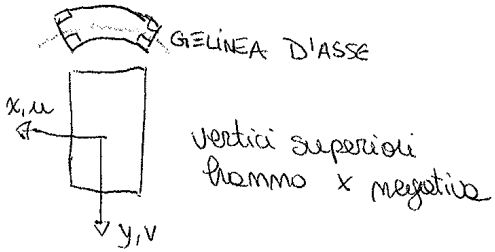 GELINEA D'ASSE
x,u
vertici superiori
hanno x negativa
y,v